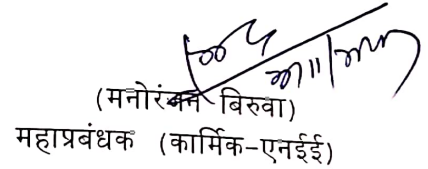 (मनोरंजन बिरुवा)
महाप्रबंधक (कार्मिक-एनईई)